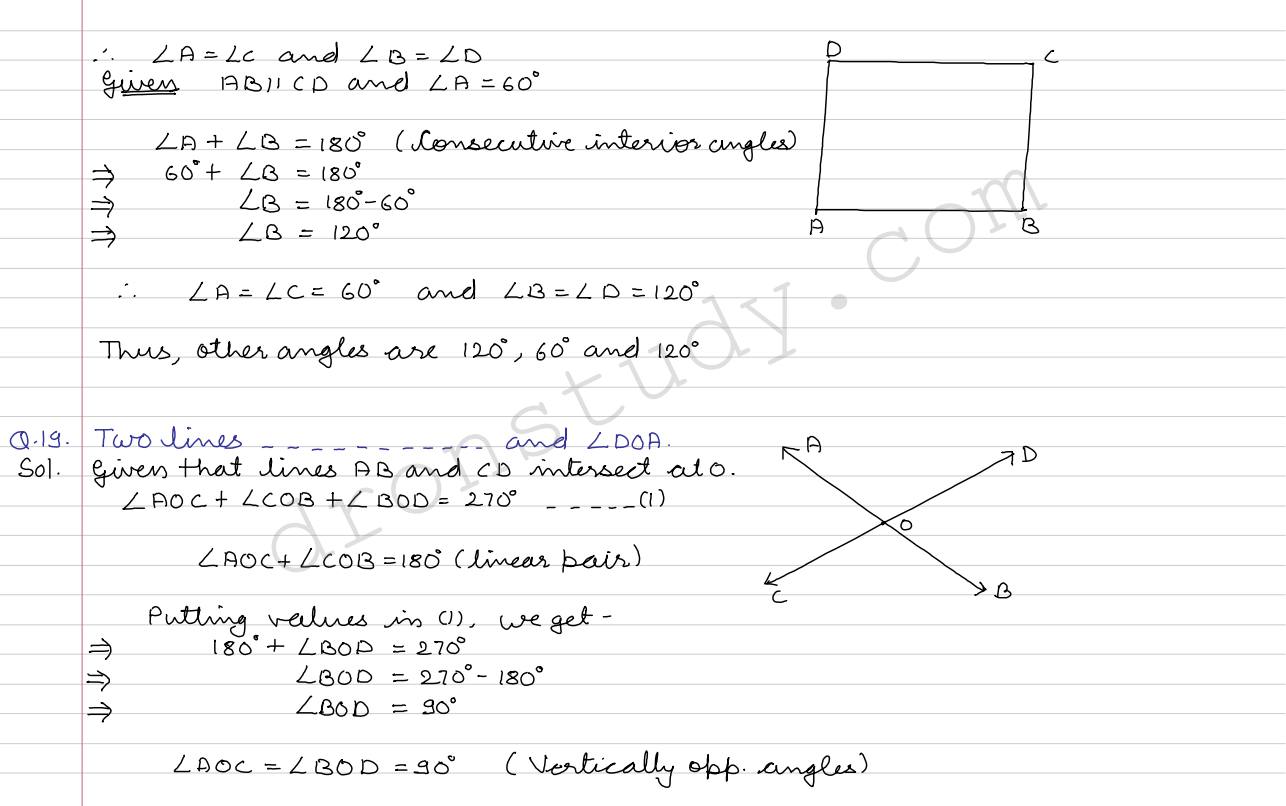 ∴ ∠A = ∠C and ∠B = ∠D
Given AB || CD and ∠A = 60°
∠A + ∠B = 180° (Consecutive interior angles)
⇒ 60° + ∠B = 180°
⇒ ∠B = 180° - 60°
⇒ ∠B = 120°
∴ ∠A = ∠C = 60° and ∠B = ∠D = 120°
Thus, other angles are 120°, 60° and 120°
D C
A B
Q.19. Two lines _ _ _ _ _ _ _ _ _ _ _ and ∠DOA.
Sol. Given that lines AB and CD intersect at O.
∠AOC + ∠COB + ∠BOD = 270° _ _ _ _ _ (1)
∠AOC + ∠COB = 180° (linear pair)
Putting values in (1), we get -
⇒ 180° + ∠BOD = 270°
⇒ ∠BOD = 270° - 180°
⇒ ∠BOD = 90°
∠AOC = ∠BOD = 90° (Vertically opp. angles)
A D
O
C B
dronstudy.com